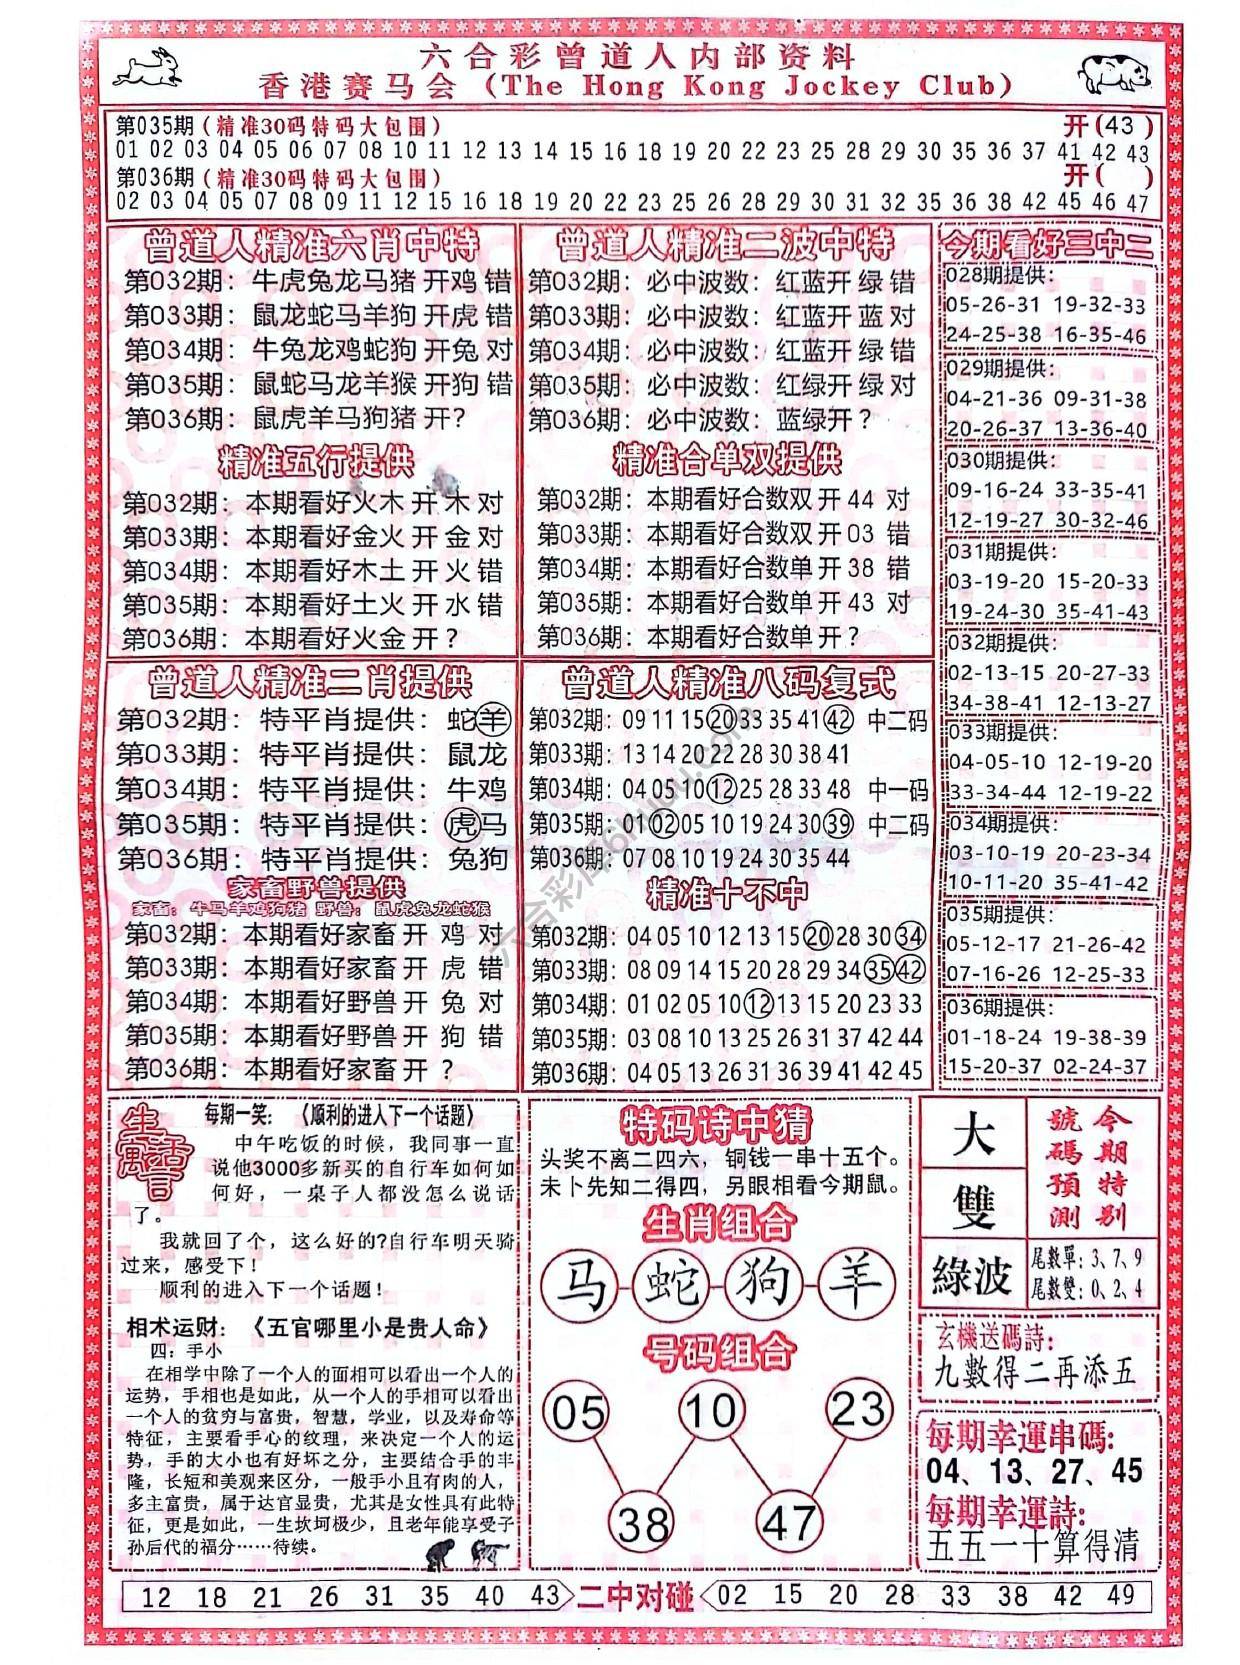 六合彩曾道人内部资料
香港赛马会（The Hong Kong Jockey Club）
第035期（精准30码特码大包围） 开(43 )
01 02 03 04 05 06 07 08 10 11 12 13 14 15 16 18 19 20 22 23 25 28 29 30 35 36 37 41 42 43
第036期（精准30码特码大包围） 开( )
02 03 04 05 07 08 09 11 12 15 16 18 19 20 22 23 25 26 28 29 30 31 32 35 36 38 42 45 46 47
曾道人精准六肖中特
第032期：牛虎兔龙马猪 开鸡 错
第033期：鼠龙蛇马羊狗 开虎 错
第034期：牛兔龙鸡蛇狗 开兔 对
第035期：鼠蛇马龙羊猴 开狗 错
第036期：鼠虎羊马狗猪 开？
精准五行提供
第032期：本期看好火木 开 木 对
第033期：本期看好金火 开 金 对
第034期：本期看好木土 开 火 错
第035期：本期看好土火 开 水 错
第036期：本期看好火金 开 ？
曾道人精准二波中特
第032期：必中波数：红蓝开 绿 错
第033期：必中波数：红蓝开 蓝 对
第034期：必中波数：红蓝开 绿 错
第035期：必中波数：红绿开 绿 对
第036期：必中波数：蓝绿开 ？
精准合单双提供
第032期：本期看好合数双 开 44 对
第033期：本期看好合数双 开 03 错
第034期：本期看好合数单 开 38 错
第035期：本期看好合数单 开 43 对
第036期：本期看好合数单 开？
今期看好三中二
028期提供：
05-26-31 19-32-33
24-25-38 16-35-46
029期提供：
04-21-36 09-31-38
20-26-37 13-36-40
030期提供：
09-16-24 33-35-41
12-19-27 30-32-46
031期提供：
03-19-20 15-20-33
19-24-30 35-41-43
032期提供：
02-13-15 20-27-33
34-38-41 12-13-27
033期提供：
04-05-10 12-19-20
33-34-44 12-19-22
034期提供：
03-10-19 20-23-34
10-11-20 35-41-42
035期提供：
05-12-17 21-26-42
07-16-26 12-25-33
036期提供：
01-18-24 19-38-39
15-20-37 02-24-37
曾道人精准二肖提供
第032期：特平肖提供：蛇羊
第033期：特平肖提供：鼠龙
第034期：特平肖提供：牛鸡
第035期：特平肖提供：虎马
第036期：特平肖提供：兔狗
家畜野兽提供
家畜：牛马羊鸡狗猪 野兽：鼠虎兔龙蛇猴
第032期：本期看好家畜 开 鸡 对
第033期：本期看好家畜 开 虎 错
第034期：本期看好野兽 开 兔 对
第035期：本期看好野兽 开 狗 错
第036期：本期看好家畜 开 ？
曾道人精准八码复式
第032期：09 11 15 20 33 35 41 42 中二码
第033期：13 14 20 22 28 30 38 41
第034期：04 05 10 12 25 28 33 48 中一码
第035期：01 02 05 10 19 24 30 39 中二码
第036期：07 08 10 19 24 30 35 44
精准十不中
第032期：04 05 10 12 13 15 20 28 30 34
第033期：08 09 14 15 20 28 29 34 35 42
第034期：01 02 05 10 12 13 15 20 23 33
第035期：03 08 10 13 25 26 31 37 42 44
第036期：04 05 13 26 31 36 39 41 42 45
六合彩库6huu.com
生活寓言
每期一笑：《顺利的进入下一个话题》
中午吃饭的时候，我同事一直
说他3000多新买的自行车如何如
何好，一桌子人都没怎么说话
了。
我就回了个，这么好的?自行车明天骑
过来，感受下！
顺利的进入下一个话题！
相术运财：《五官哪里小是贵人命》
四：手小
在相学中除了一个人的面相可以看出一个人的
运势，手相也是如此，从一个人的手相可以看出
一个人的贫穷与富贵，智慧，学业，以及寿命等
特征，主要看手心的纹理，来决定一个人的运
势，手的大小也有好坏之分，主要结合手的丰
隆，长短和美观来区分，一般手小且有肉的人，
多主富贵，属于达官显贵，尤其是女性具有此特
征，更是如此，一生坎坷极少，且老年能享受子
孙后代的福分……待续。
特码诗中猜
头奖不离二四六，铜钱一串十五个。
未卜先知二得四，另眼相看今期鼠。
生肖组合
马 蛇 狗 羊
号码组合
05 10 23
38 47
大
雙
綠波
今期特别
號碼預測
尾數單：3、7、9
尾數雙：0、2、4
玄機送碼詩：
九數得二再添五
每期幸運串碼：
04、13、27、45
每期幸運詩：
五五一十算得清
12 18 21 26 31 35 40 43 二中对碰 02 15 20 28 33 38 42 49